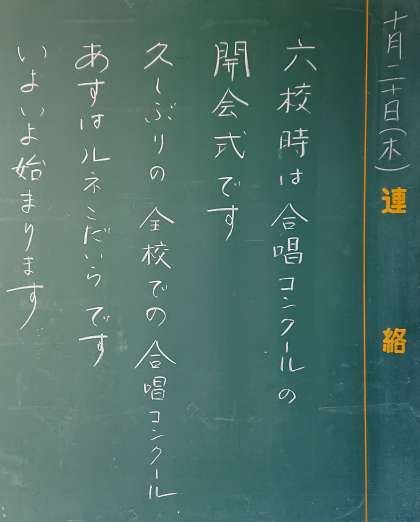 十月二十日(木)
連絡
六校時は合唱コンクールの
開会式です
久しぶりの全校での合唱コンクール
あすはルネこだいらです
いよいよ始まります